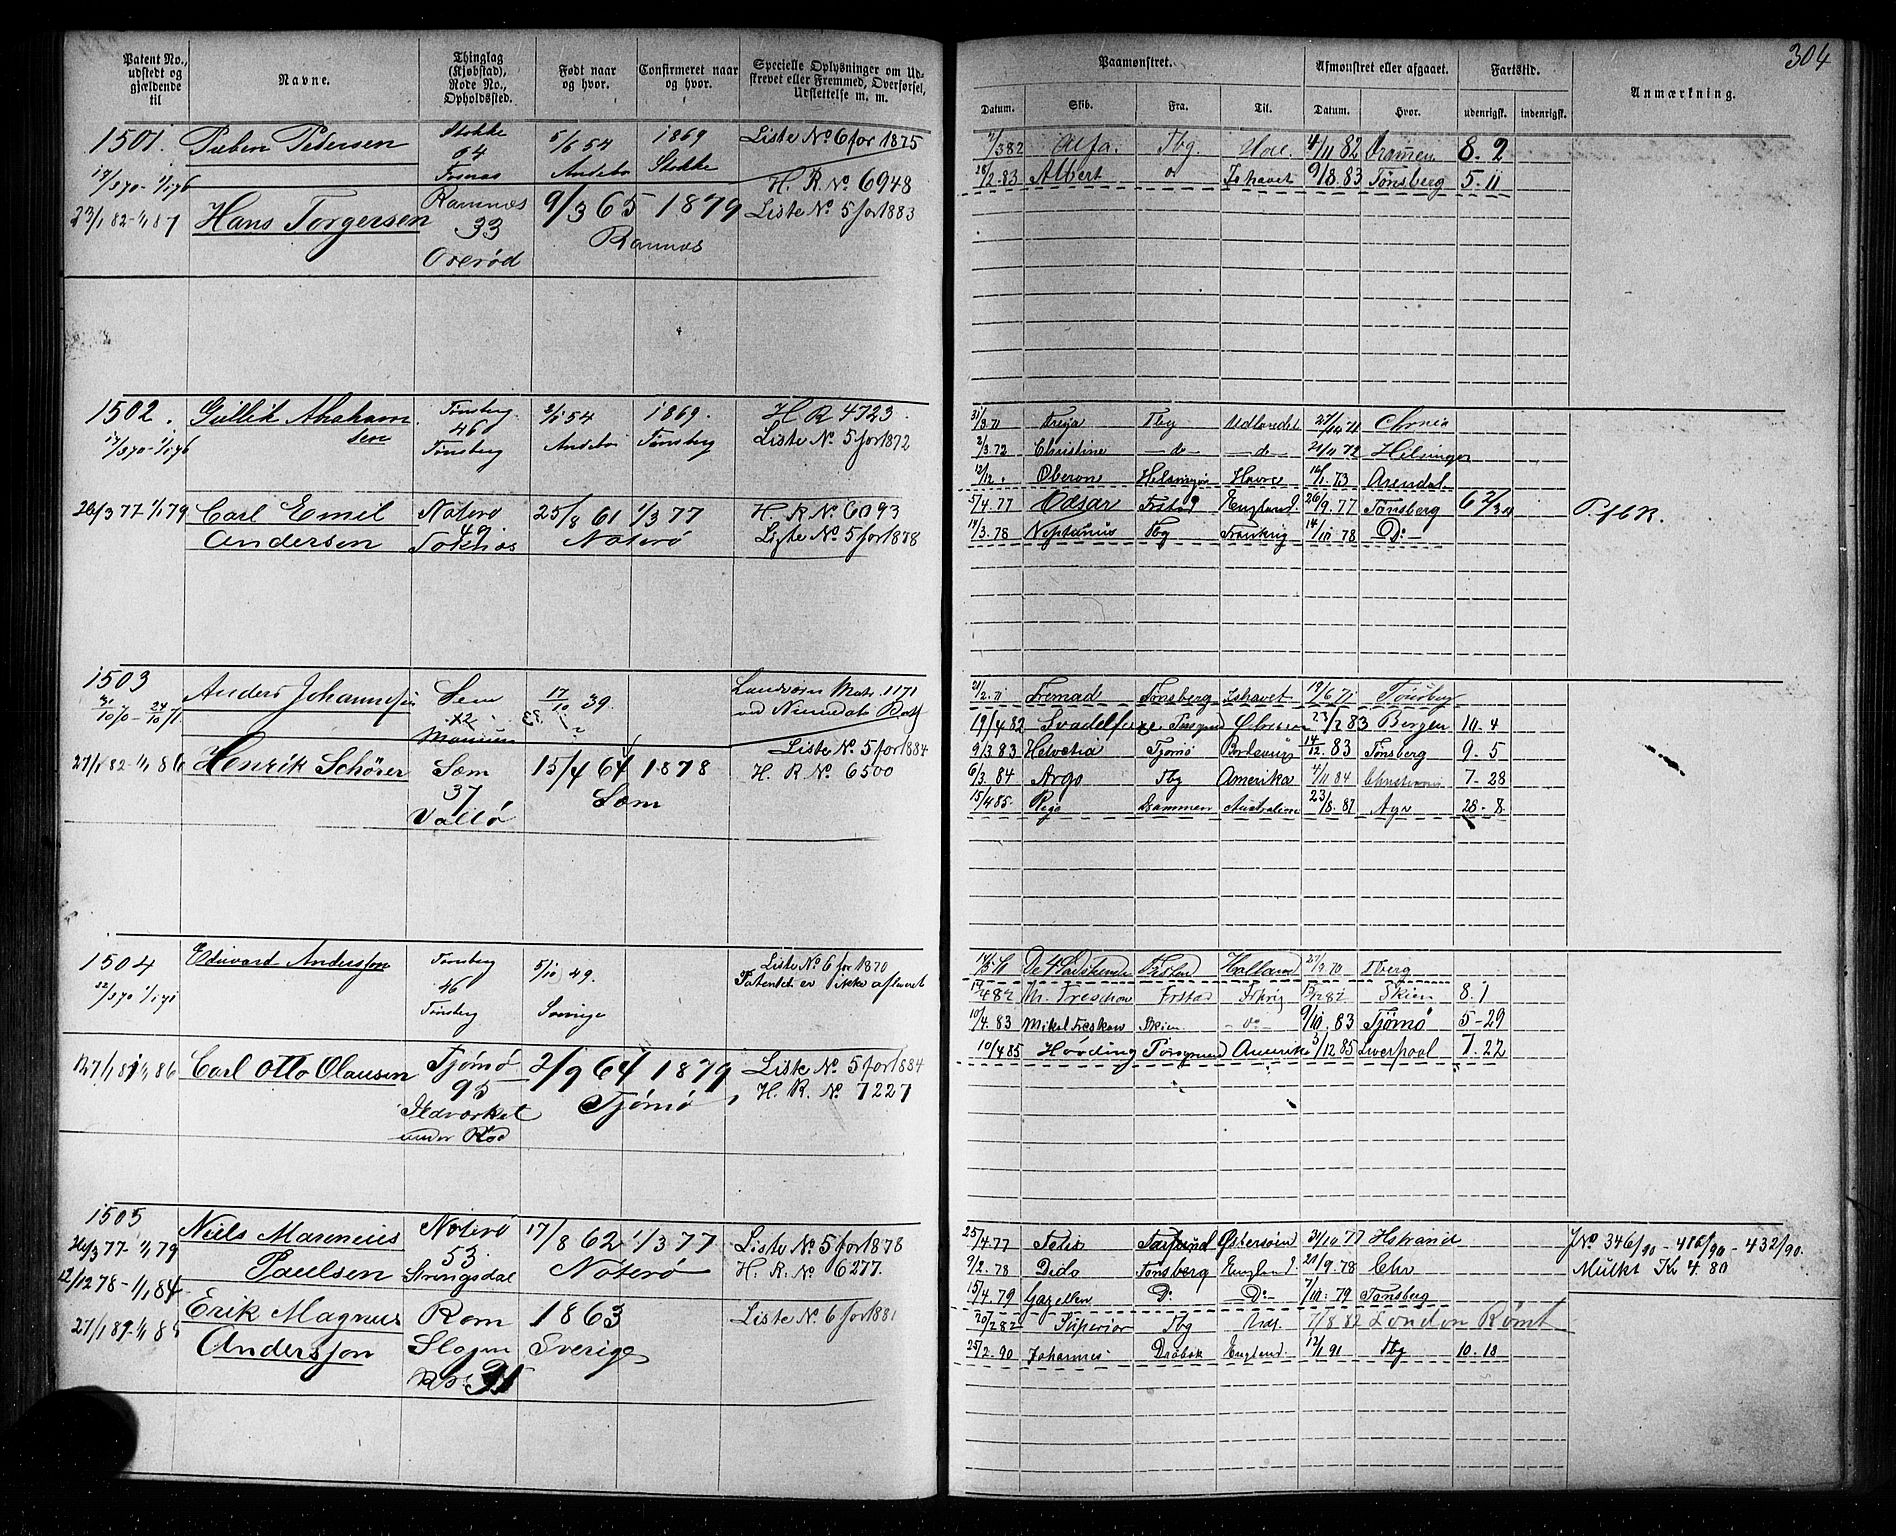 304
Patent No., udstedt og gjældende til
Navne.
Thinglag (Kjøbstad), Rode No., Opholdssted.
Født naar og hvor.
Confirmeret naar og hvor.
Specielle Oplysninger om Udskrevet eller Fremmed, Overførsel, Udslettelse m. m.
Paamønstret.
Afmønstret eller afgaaet.
Fartstid.
Anmærkning.
Datum. Skib. Fra. Til. Datum. Hvor. udenrigsk. indenrigsk.
1501. Preben Petersen Stokke 64 5/6 54 Andebu 1869 Stokke Liste No 6 for 1875
17/3 70 - 1/1 76
H. R. No 6948
23/1 82 - 1/1 87 Hans Torgersen Ramnæs 33 Orerød 9/3 65 1879 Ramnæs Liste No 5 for 1883
Alfa. Tbg. 4/11 82 Drammen 8. 2
2. 83 Albert do Ishavet 9/8. 83 Tønsberg 5. 11
1502. Gullik Abrahamsen Tønsberg 46 Tønsberg 54 Andebu 1869. Tønsberg H. R 4723
17/3 70 - 1/1 76
Liste No 5 for 1872
26/3 77 1/1 79 Carl Emil Andersen Nøterø 49. 25/8 61 1/3 77 Nøterø H. R No 6093
Liste No 5 for 1878
31/3. 71 Freja Tbg Udlandet Chrnia
2/3. 72 Christine - do - - do - 21/11 72 Helsingør
12/12. Oberon Helsingør Havre 73 Arendal
5/4. 77 Cæsar Frstad England. 26/9. 77 Tønsberg 6 2/30
14/3. 78 Neptunus Tbg Frankrig 14/10 78 Do -
1503 Anders Johannesen Sem 42 17/10 39.
21/10 70 - 24/10 71
27/1 82 - 1/1 86 Henrik Schörer Sæm 37 Vallø 15/4 64 1878 Sæm Liste No 5 for 1884
H. R. No 6500
21/2. 71 Fremad Tønsberg Ishavet 19/6. 71 Tønsberg
19/4 82 23/2 83 Bergen 10. 4
9/3 83 Helvetia Tjømø 14/12. 83 Tønsberg 9. 5
6/3. 84 Argo Tbg Amerika 4/11 84 Christiania 7 - 28
15/4 85. Drammen Australien 23/8. 87 28 - 8
1504 Edvard Andersson Tønsberg 46 Tønsberg 5/10 49. Sverige Liste No 6 for 1870
22/3 70 1/1 71
Patentet er ikke afleveret
27/1 81 1/1 86 Carl Otto Olausen Tjømø 95 under Rød 2/9 64 1879 Tjømø Liste No 5 for 1884
H. R. No 7227
Frstad Holland 27/9. 70 Tberg
4 82 M. Treschow Frstad Skien 8. 1
10/4. 83 Mikal Treskow Skien - do - 9/10. 83 Tjømø 5 - 29
10/4 85 Høvding Porsgrund Amerika 3/12 85 Liverpool 7. 22
1505 Niels Marenius Paulsen Nøterø 53. Stringsdal 17/8 62 1/3 77 Nøterø Liste No 5 for 1878
26/3 77 - 1/1 79
H. R. No 6277.
12/12 78 - 1/1 84
27/1 81 - 1/1 85 Erik Magnus Andersson Rom Slagen 91 1863 Sverige Liste No 6 for 1881
25/4. 77 Østersøen 31/10 77 Hstrand
J No 346/90 - 416/90 - 432/90.
2/2. 78 Dido Tønsberg England. 21/9. 78 Chr
Mulkt Kr 4. 80
15/4. 79 Gazellen Do Do - 7/10. 79 Tønsberg
20/2 82 Superior Tbg Udl. 7/8. 82 London Rømt
25/2. 90 Johannes Drøbak England 12/1 91 Tbg 10. 18